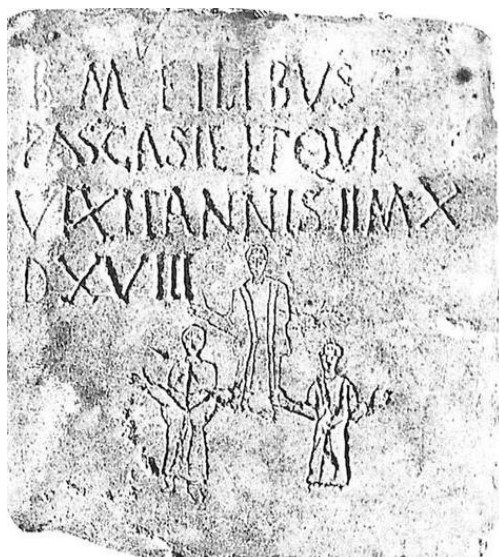 B M FILIBVS
PASCASIE ET QVI
VIXIT ANNIS II M X
D XVIII